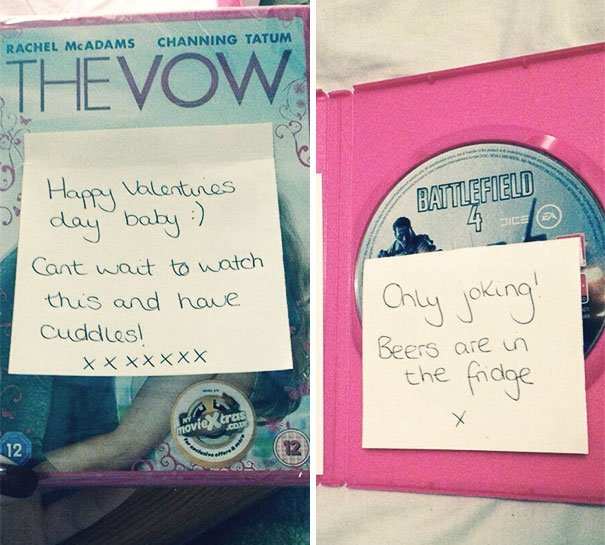 RACHEL McADAMS CHANNING TATUM
THE VOW
Happy Valentines
day baby :)
Cant wait to watch
this and have
cuddles!
x x x x x x x
MY
movieXtras
.co.uk
for exclusive offers & more
12
12
BATTLEFIELD
4
DICE EA
Only joking!
Beers are in
the fridge
x